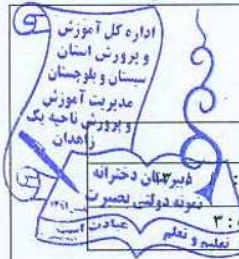 اداره کل آموزش
و پرورش استان
سیستان و بلوچستان
مدیریت آموزش
و پرورش ناحیه یک
زاهدان
دبیرستان دخترانه
نمونه دولتی بصیرت
عبادت است
تعلیم و تعلم